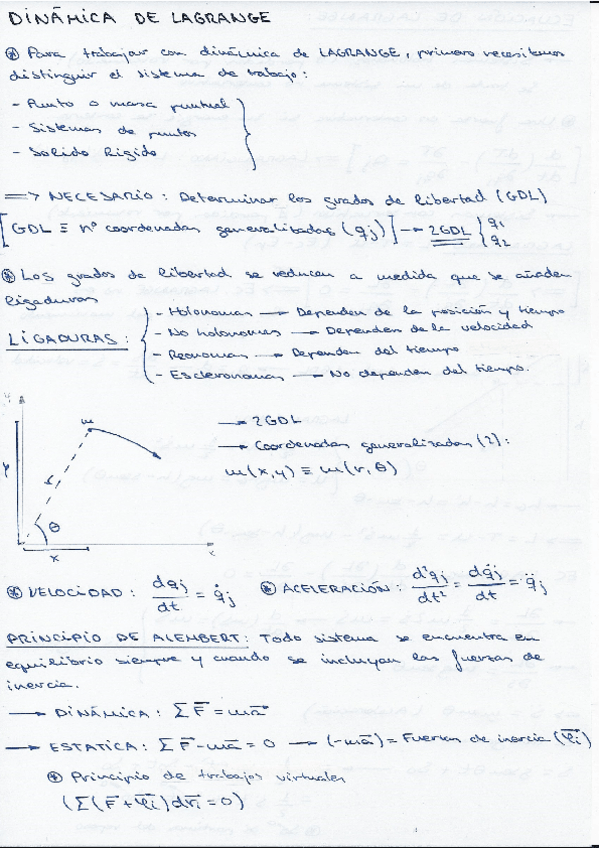 DINÁMICA DE LAGRANGE
⊛ Para trabajar con dinámica de LAGRANGE, primero necesitamos
distinguir el sistema de trabajo:
- Punto o masa puntual
- Sistemas de puntos
- Solido Rigido
=> NECESARIO: Determinar los grados de libertad (GDL)
[GDL ≡ nº coordenadas generalizadas (qj)] → 2GDL { q1
q2
⊛ Los grados de libertad se reducen a medida que se añaden
ligaduras
LIGADURAS: - Holonomas → Dependen de la posición y tiempo
- No holonomas → Dependen de la velocidad
- Reonomas → Dependen del tiempo
- Escleronomas → No dependen del tiempo.
y
m
→ 2GDL
→ Coordenadas generalizadas (2):
m(x,y) ≡ m(r,θ)
y
r
θ
x
x
⊛ VELOCIDAD: dqj/dt = q̇j ⊛ ACELERACIÓN: d²qj/dt² = dq̇j/dt = q̈j
PRINCIPIO DE ALEMBERT: Todo sistema se encuentra en
equilibrio siempre y cuando se incluyan las fuerzas de
inercia.
→ DINÁMICA: ΣF⃗ = ma⃗
→ ESTATICA: ΣF⃗ - ma⃗ = 0 → (-ma⃗) = Fuerzas de inercia (φ⃗i)
⊛ Principio de trabajos virtuales
(Σ(F⃗ + φ⃗i)dr⃗i = 0)